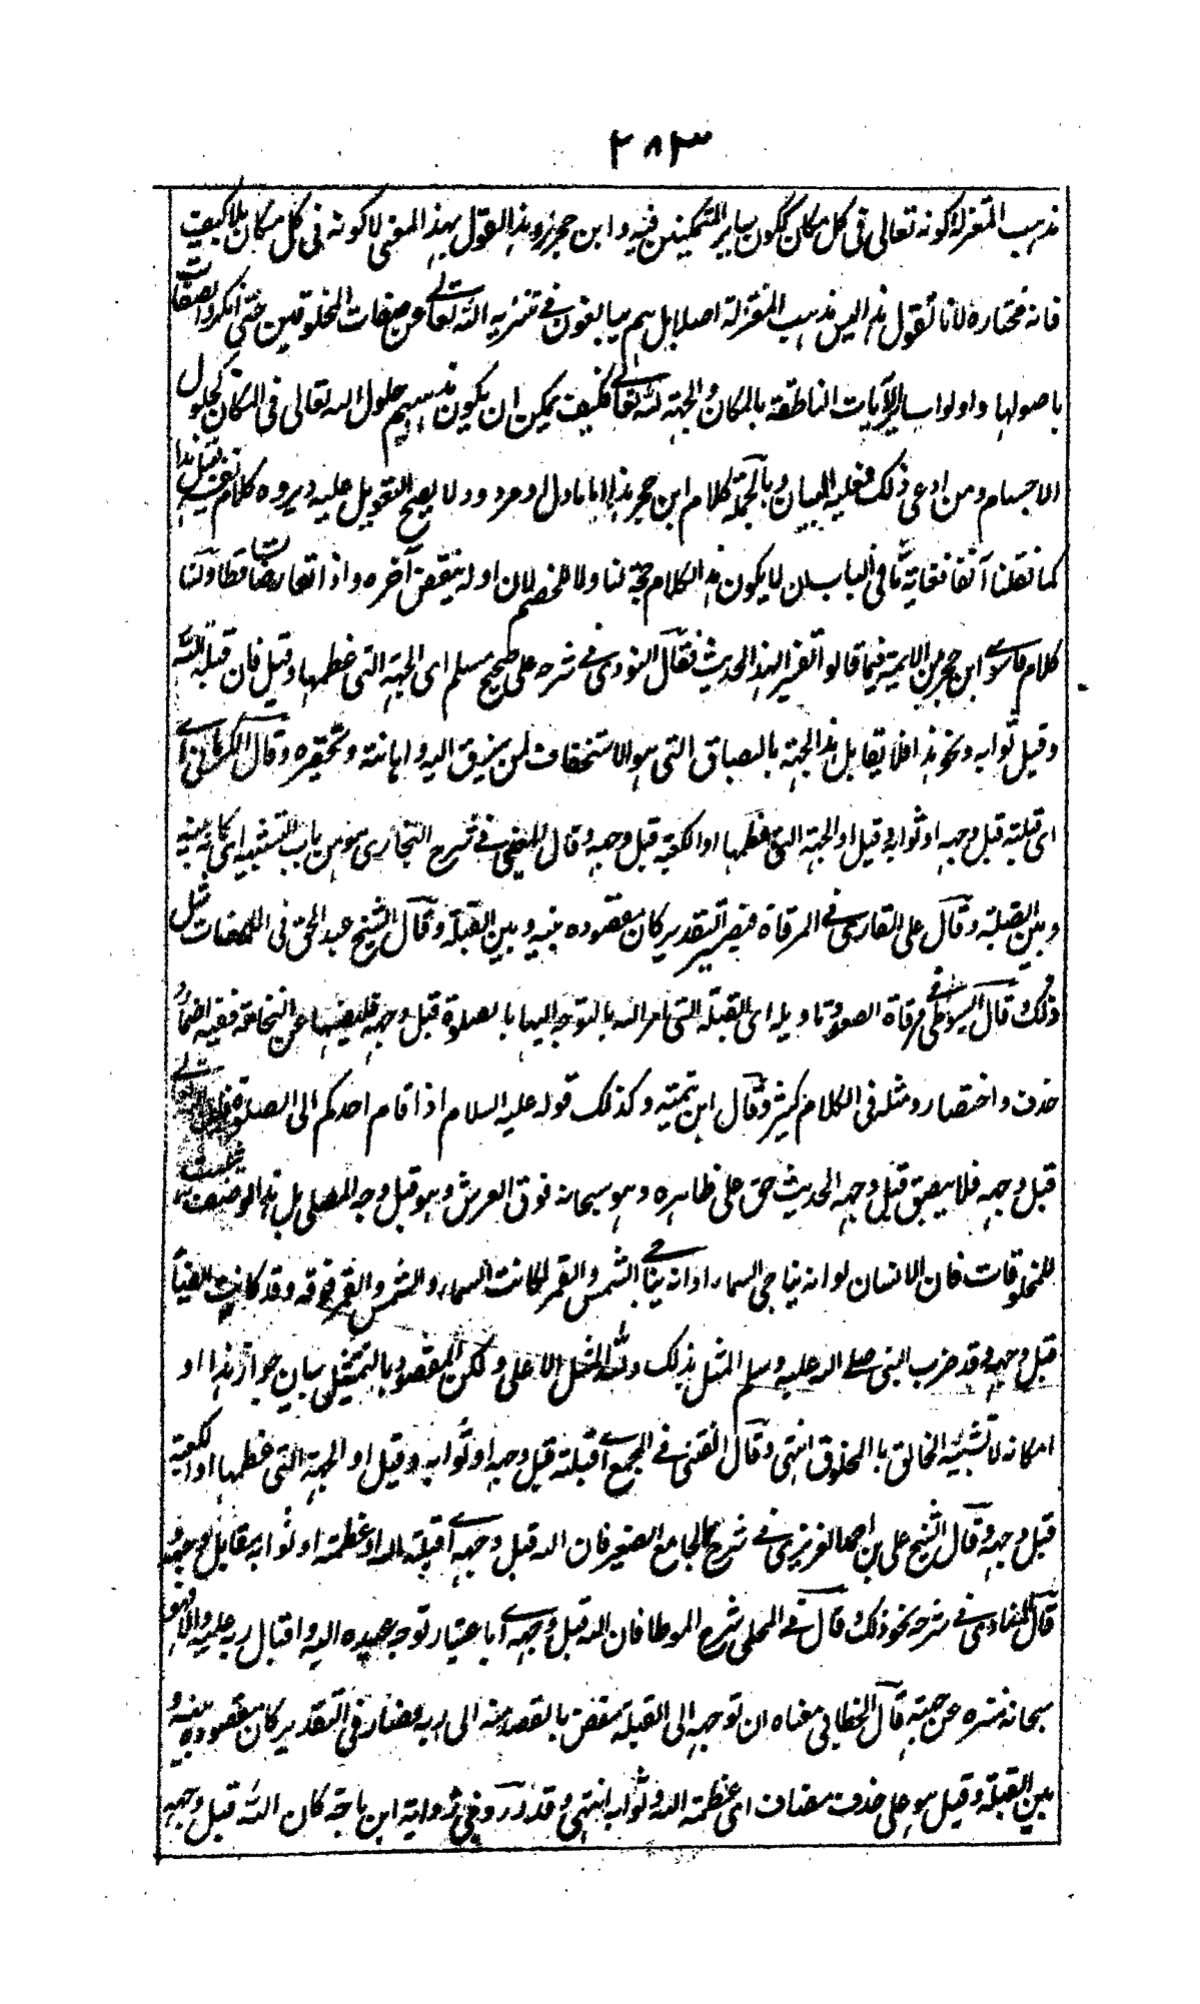 ٢٨٣
مذهب المعتزلة كونه تعالى فى كل مكان ككون ساير المتمكنين فيه وابن حجر زد هذا القول بهذا المعنى لا كونه فى كل مكان بلا كيف
فانه مختاره لانا نقول هذا ليس مذهب المعتزلة اصلا بل هم يبالغون فى تنزيه الله تعالى عن صفات المخلوقين حتى انكروا الصفات
باصولها واولوا ساير الآيات الناطقة بالمكان والجهة لله تعالى فكيف يمكن ان يكون مذهبهم حلول الله تعالى فى المكان كحلول
الاجسام ومن ادعى ذلك فعليه البيان وبالجملة كلام ابن حجر هذا اما مأول او مردود لا يصح التعويل عليه ويروه كلام نفسه
كما نقلنا آنفا فغاية ما فى الباب ان لا يكون هذا الكلام حجة لنا ولا للخصم لان اوله ينقض آخره واذا تعارضا تساقطا ولنا
كلام ما سوى ابن حجر من الايمة فيما قالوا تفسيرا لهذا الحديث فقال النووى فى شرحه على صحيح مسلم اى الجهة التى عظمها وقيل فان قبلة الله
وقيل ثوابه ونحو هذا فلا يقابل هذا الجهة بالبصاق التى هو الاستخفاف لمن يبزق اليه واهانته وتحقيره وقال الكرمانى
اى قبلته قبل وجهه او ثوابه وقيل او الجهة التى عظمها او الكعبة قبل وجهه وقال العينى فى شرح البخارى هو من باب التشبيه اى كانه بينه
وبين القبلة وقال على القارى فى المرقاة فيصير التقدير كان مقصوده بينه وبين القبلة وقال الشيخ عبد الحق فى اللمعات مثل
ذلك وقال السيوطى فى مرقاة الصعود تاويله اى القبلة التى امر الله بالتوجه اليها بالصلوة قبل وجهه فليصنها عن النخاعة ففيه اضمار و
حذف واختصار ومثله فى الكلام كثير وقال ابن تيمية وكذلك قوله عليه السلام اذا قام احدكم الى الصلوة فان الله تعالى
قبل وجهه فلا يبصق قبل وجهه الحديث حق على ظاهره وهو سبحانه فوق العرش وهو قبل وجه المصلى بل هذا الوصف يثبت
للمخلوقات فان الانسان لو انه يناجى السماء او انه يناجى الشمس والقمر لكانت السماء والشمس والقمر فوقه وقد كانت ايضا
قبل وجهه وقد ضرب النبى صلى الله عليه وسلم المثل بذلك ولله المثل الاعلى ولكن المقصود بالتمثيل بيان جواز هذا او
امكانه لا تشبيه الخالق بالمخلوق انتهى وقال الفتنى فى المجمع اى قبلته قبل وجهه او ثوابه وقيل او الجهة التى عظمها او الكعبة
قبل وجهه وقال الشيخ على بن احمد العزيزى فى شرح الجامع الصغير فان الله قبل وجهه اى قبلة الله او عظمته او ثوابه مقابل وجهه و
قال المناوى فى شرحه نحو ذلك وقال فى المحلى شرح الموطا فان الله قبل وجهه اى باعتبار توجه عبده اليه واقبال ربه عليه والا فهو
سبحانه منزه عن جهة قال الخطابى معناه ان توجهه الى القبلة مفض بالقصد منه الى ربه فصار فى التقدير كان مقصوده بينه و
بين القبلة وقيل هو على حذف مضاف اى عظمة الله وثوابه انتهى وقد ورد وفى رواية ابن ماجة كان الله قبل وجهه